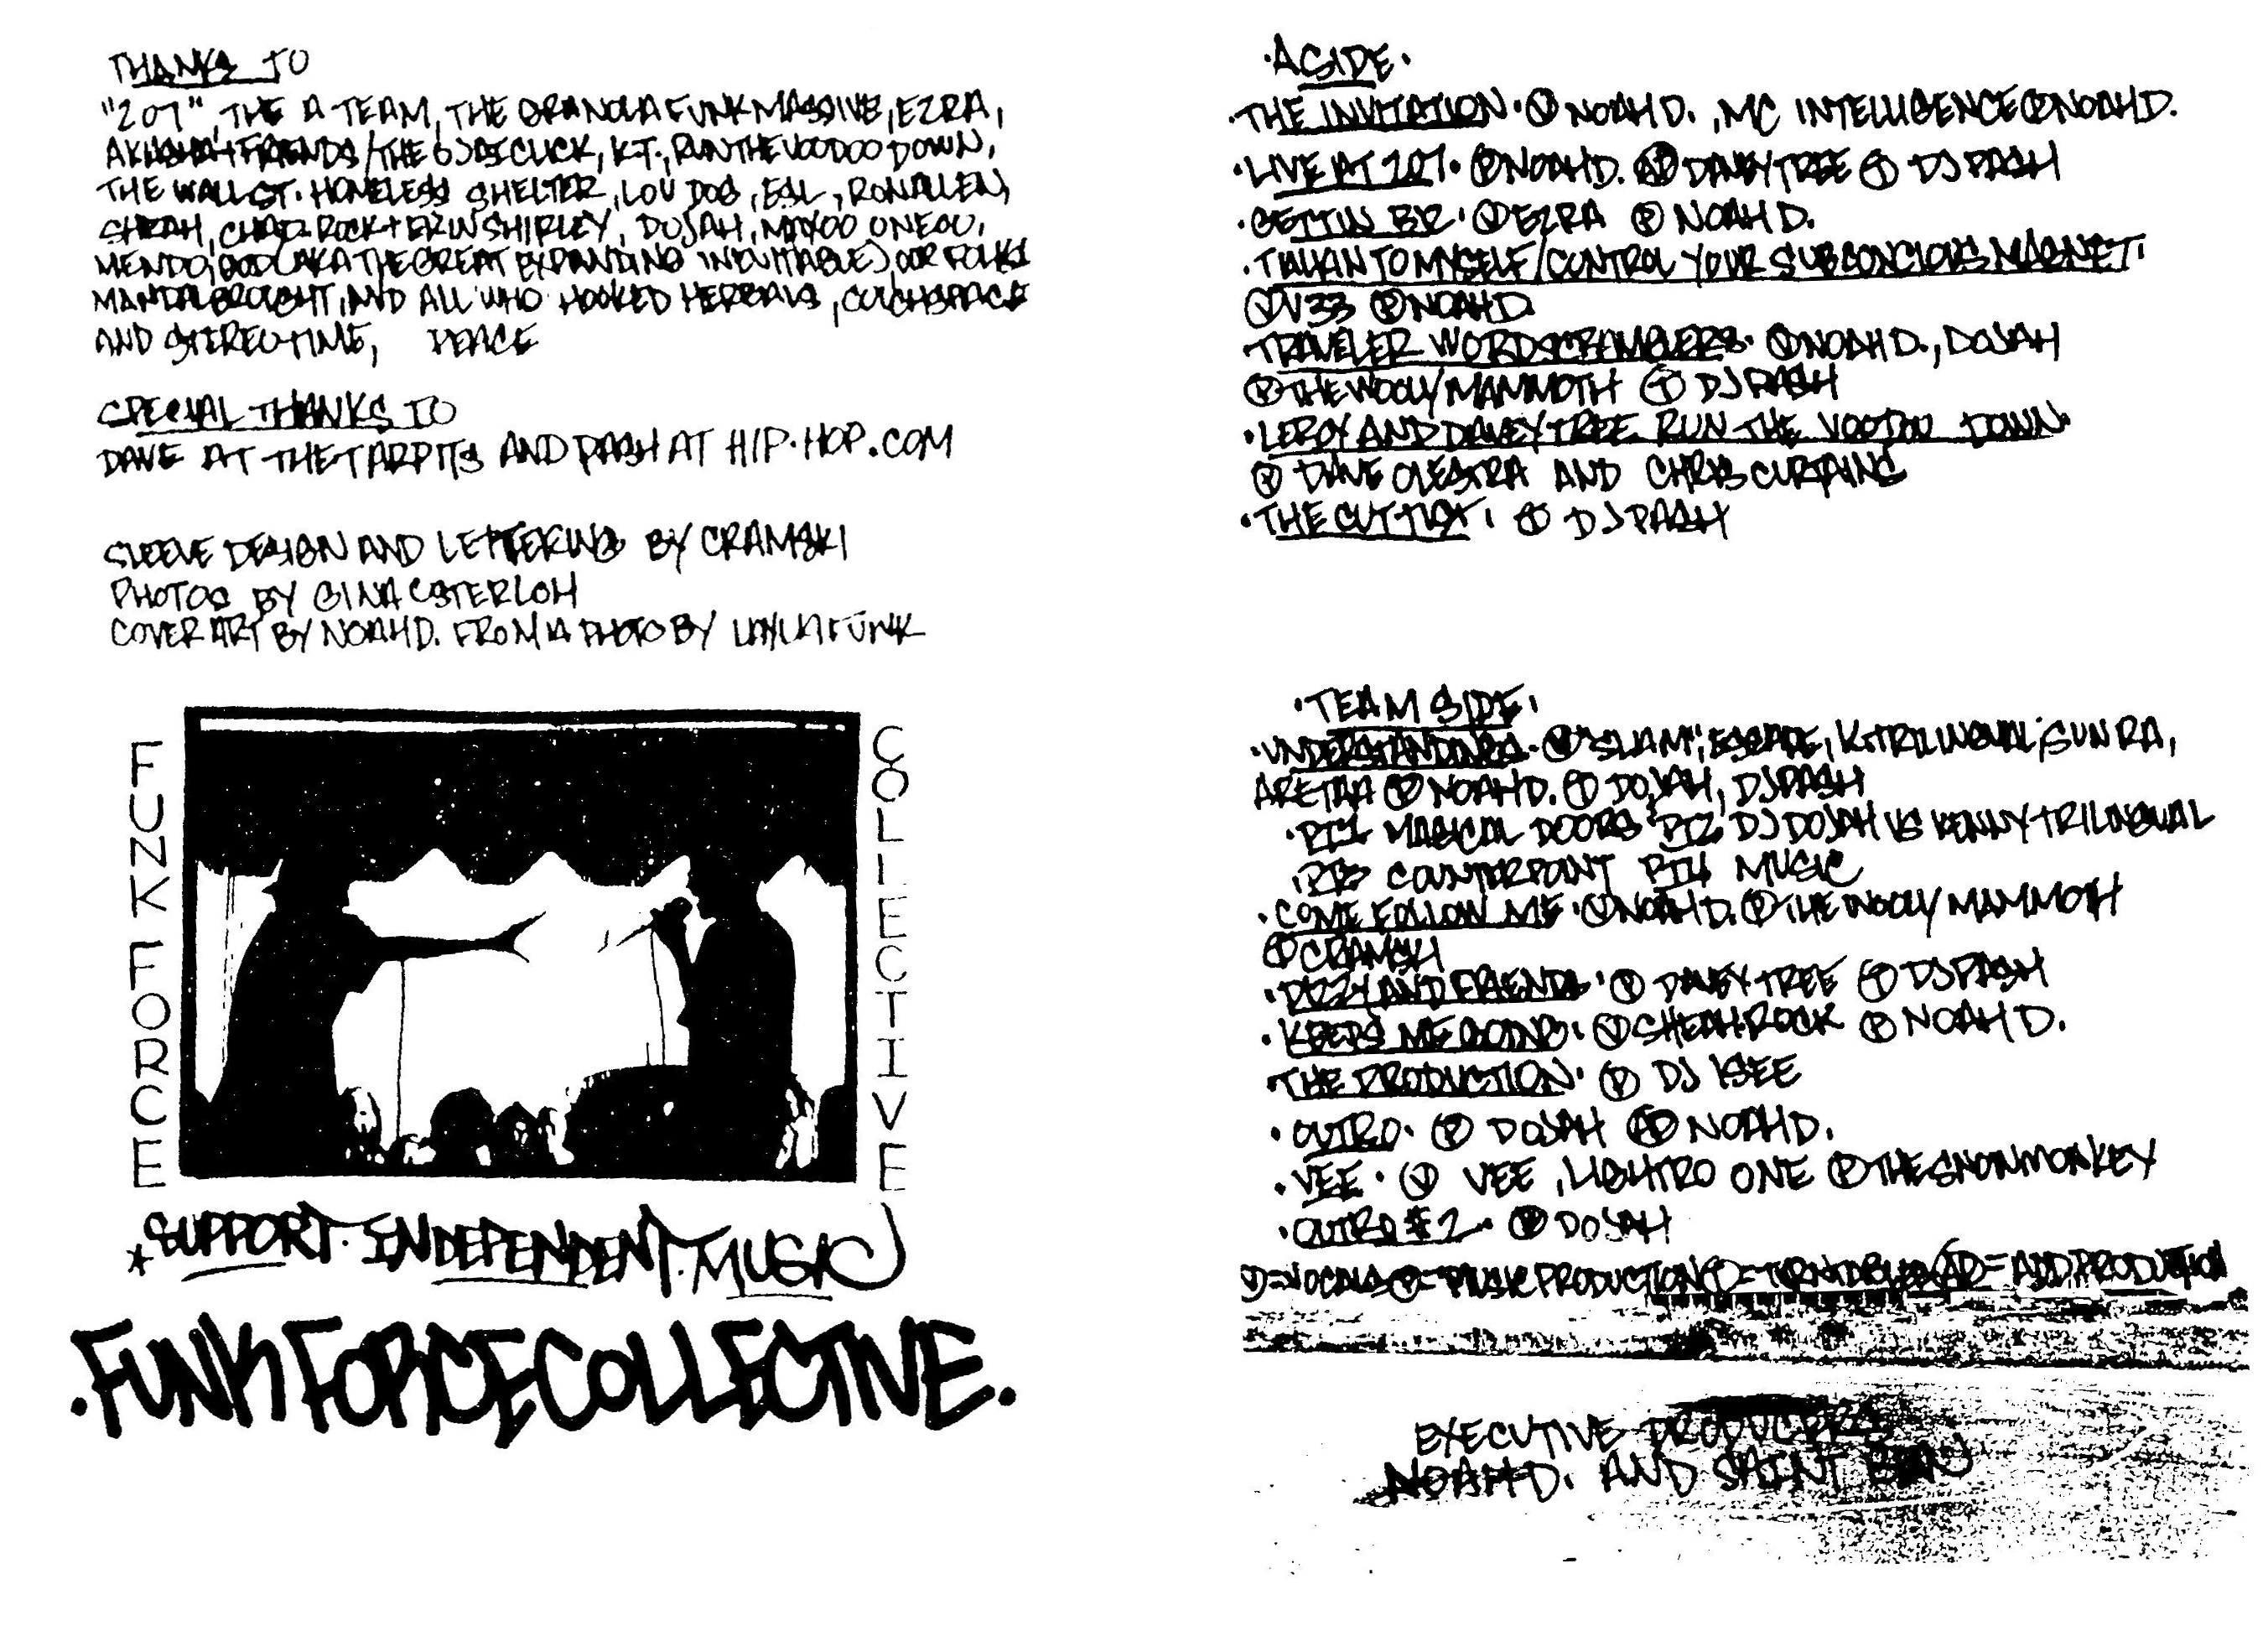 THANKS TO
"207", THE A TEAM, THE GRANOLA FUNK MASSIVE, EZRA,
AKASHA + FRIENDS/THE DJ CLICK, K.T., RUN THE VOODOO DOWN,
THE WALL ST. HOMELESS SHELTER, LOU DOG, ESL, RON ALLEN,
SHEAH, ROCK + ERIN SHIRLEY, DOJAH,
MENDO, GOD (AKA THE GREAT EXPANDING INEVITABLE), OUR FOLKS
AND ALL WHO HOOKED HERBALS, COUCHSPACE
AND STEREOTIME, PEACE
SPECIAL THANKS TO
DAVE AT THE TARPITS AND PASH AT HIP-HOP.COM
SLEEVE DESIGN AND LETTERING BY CRAMSKI
PHOTOS BY GINA OSTERLOH
COVER ART BY NOAH D. FROM A PHOTO BY FUNK
FUNK FORCE
COLLECTIVE
*SUPPORT. INDEPENDENT. MUSIC
.FUNK FORCE COLLECTIVE.
·A SIDE·
·THE INVITATION· Ⓥ NOAH D., MC INTELLIGENCE Ⓟ NOAH D.
·LIVE AT 207· Ⓟ NOAH D. AP DAVEY TREE Ⓣ DJ PASH
·GETTIN BR· Ⓥ EZRA Ⓟ NOAH D.
·TALKIN TO MYSELF/CONTROL YOUR SUBCONCIOUS MAGNET·
Ⓥ V33 Ⓟ NOAH D.
·TRAVELER WORDSCRAMBLERS· Ⓥ NOAH D., DOJAH
Ⓟ THE WOOLY MAMMOTH Ⓣ DJ PASH
·LEROY AND DAVEY TREE RUN THE VOODOO DOWN·
Ⓟ DAVE OLESTRA AND CHRIS CURTAINS
·THE CUT· Ⓣ DJ PASH
·TEAM SIDE·
·UNDERSTANDING· Ⓥ "SLAM", ESCAPE, K. TRILINGUAL, SUN RA,
ARETHA Ⓟ NOAH D. Ⓣ DOJAH, DJ PASH
·PT1 MAGICAL DOORS PT2 DJ DOJAH VS KENNY TRILINGUAL
PT3 COUNTERPOINT PT4 MUSIC
·COME FOLLOW ME· Ⓥ NOAH D. Ⓟ THE WOOLY MAMMOTH
Ⓣ CRAMSKI
·DIZZY AND FRIENDS· Ⓟ DAVEY TREE Ⓣ DJ PASH
·KEEPS ME GOING· Ⓥ SHEAH ROCK Ⓟ NOAH D.
·THE PRODUCTION· Ⓟ DJ ISEE
·OUTRO· Ⓟ DOJAH AP NOAH D.
·VEE· Ⓥ VEE, LIGHTRO ONE Ⓟ THE SNOWMONKEY
·OUTRO #2· Ⓟ DOJAH
Ⓥ=VOCALS Ⓟ=MUSIC PRODUCTION Ⓣ=TURNTABLES AP=ADD PRODUCTION
EXECUTIVE PRODUCERS
NOAH D. AND SAINT BEN